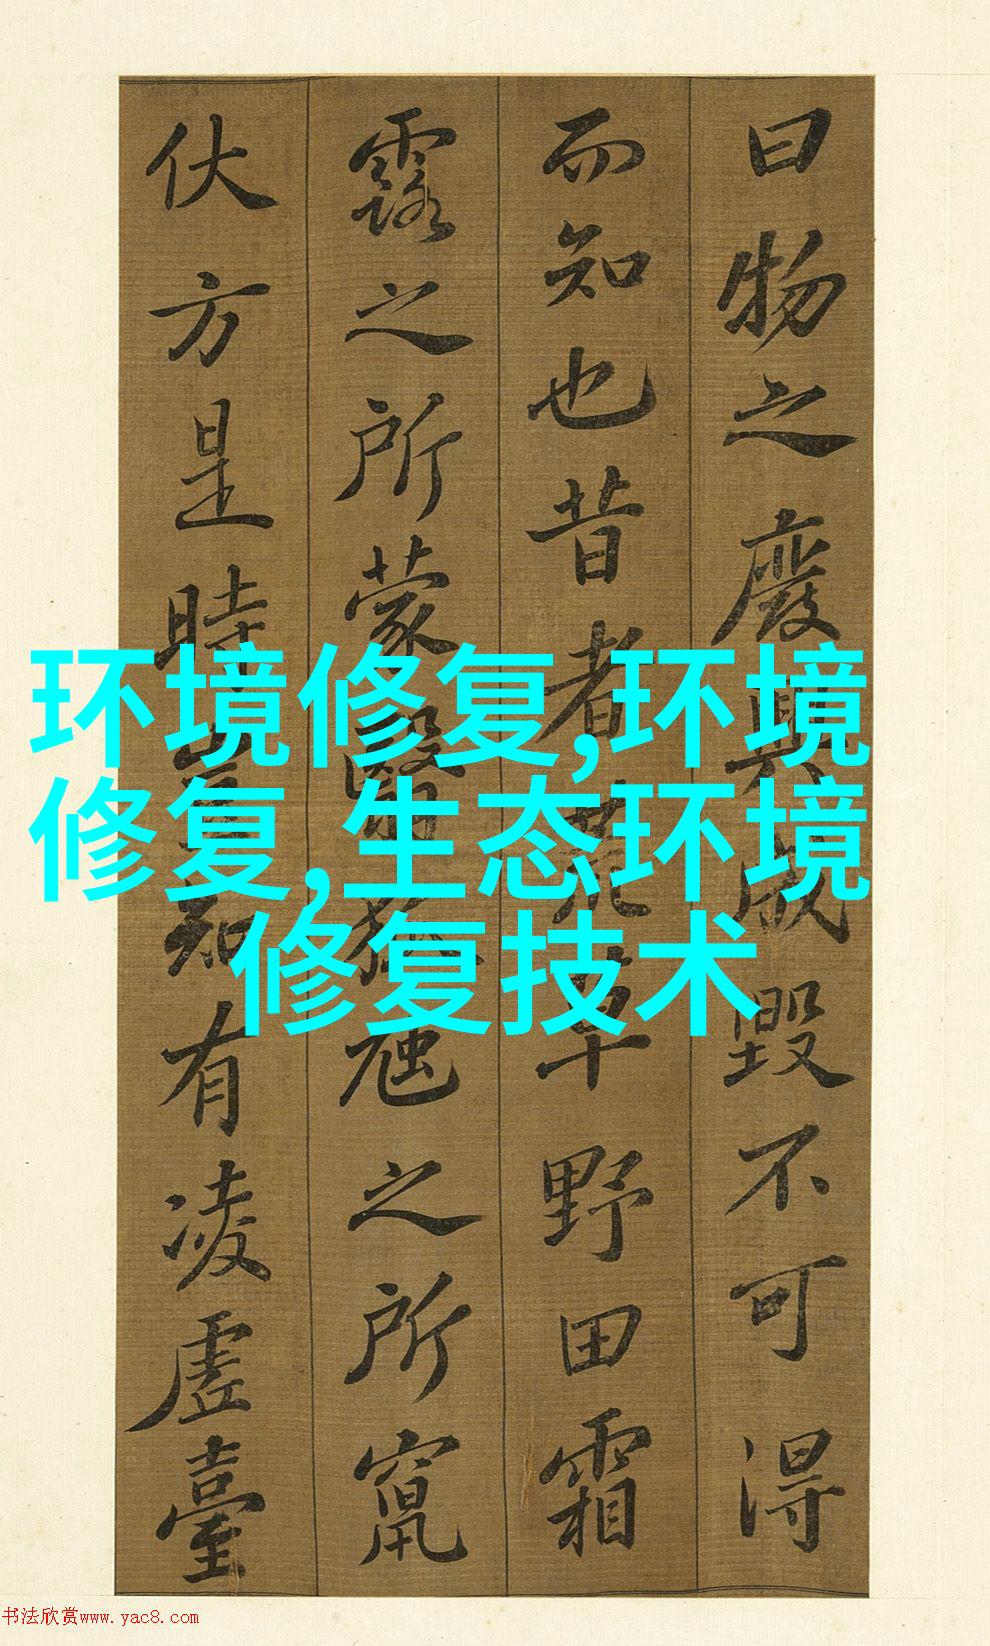 曰物之廢興成毀不可得
而知也昔者荒草野田霜
露之所蒙翳狐虺之所竄
伏方是時豈知有凌虛臺
环境修复,环境
修复,生态环境
修复技术
书法欣赏www.yac8.com